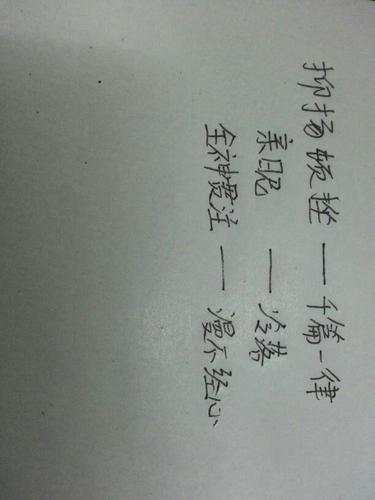 抑扬顿挫——千篇一律
亲昵——冷落
全神贯注——漫不经心